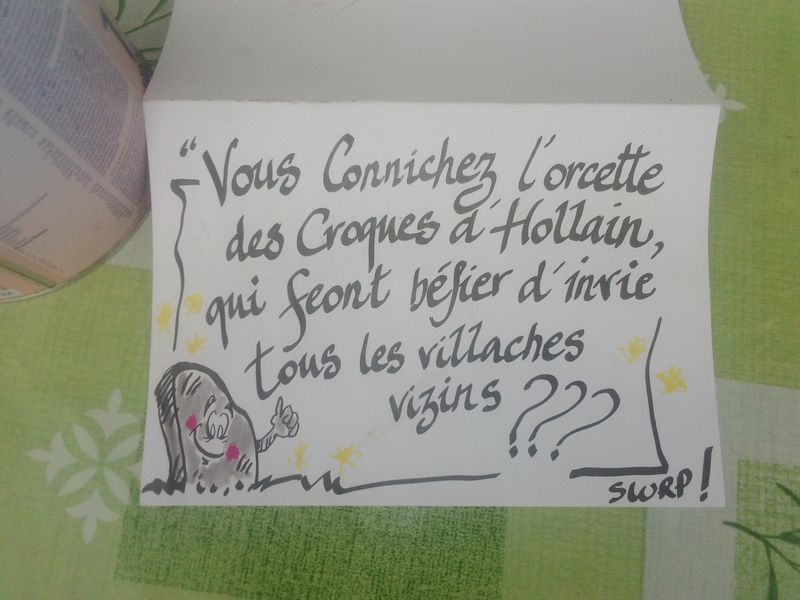 “Vous Connichez l'orcette
des Croques d'Hollain,
qui feont béfier d'invie
tous les villaches
vizins ???
SWRP!